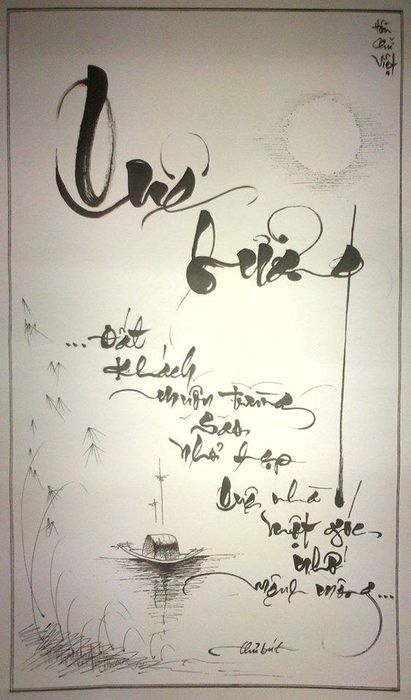 Hồn
Chữ
Việt
Quê
hương
...Đất
khách
muôn trùng
sao
nhỏ hẹp
Quê nhà
một góc
nhớ
mênh mông...